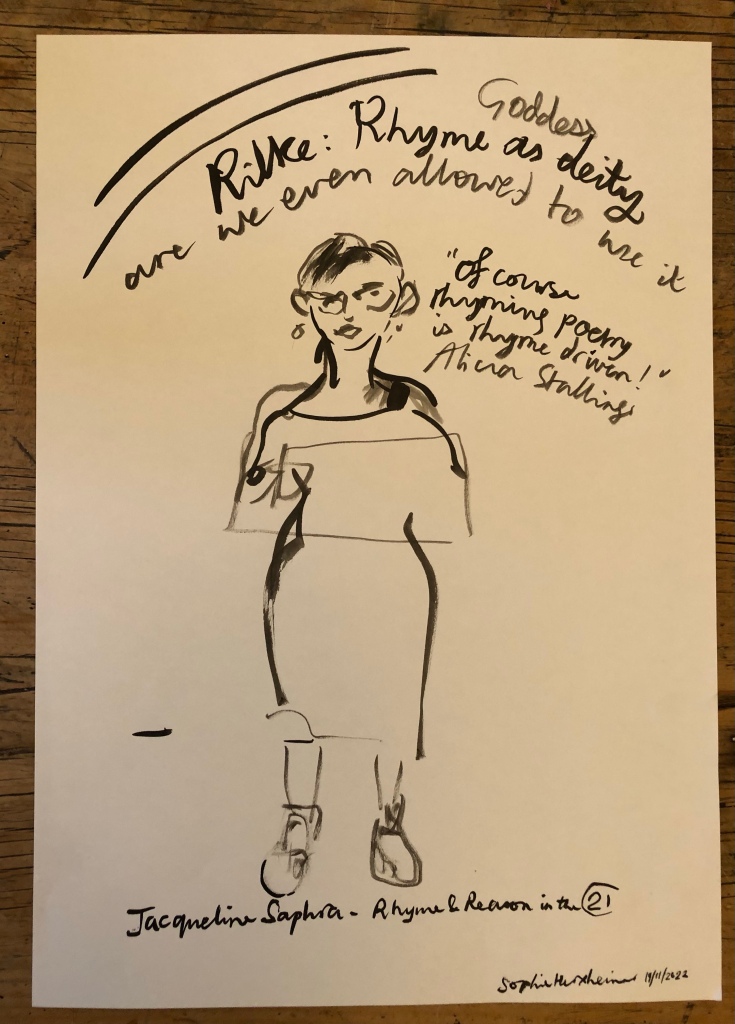 Goddess
Rilke: Rhyme as deity
are we even allowed to use it
"Of course
rhyming poetry
is rhyme driven!"
Alicia Stallings
Jacqueline Saphra - Rhyme & Reason in the 21
Sophie Herxheimer 19/11/2022